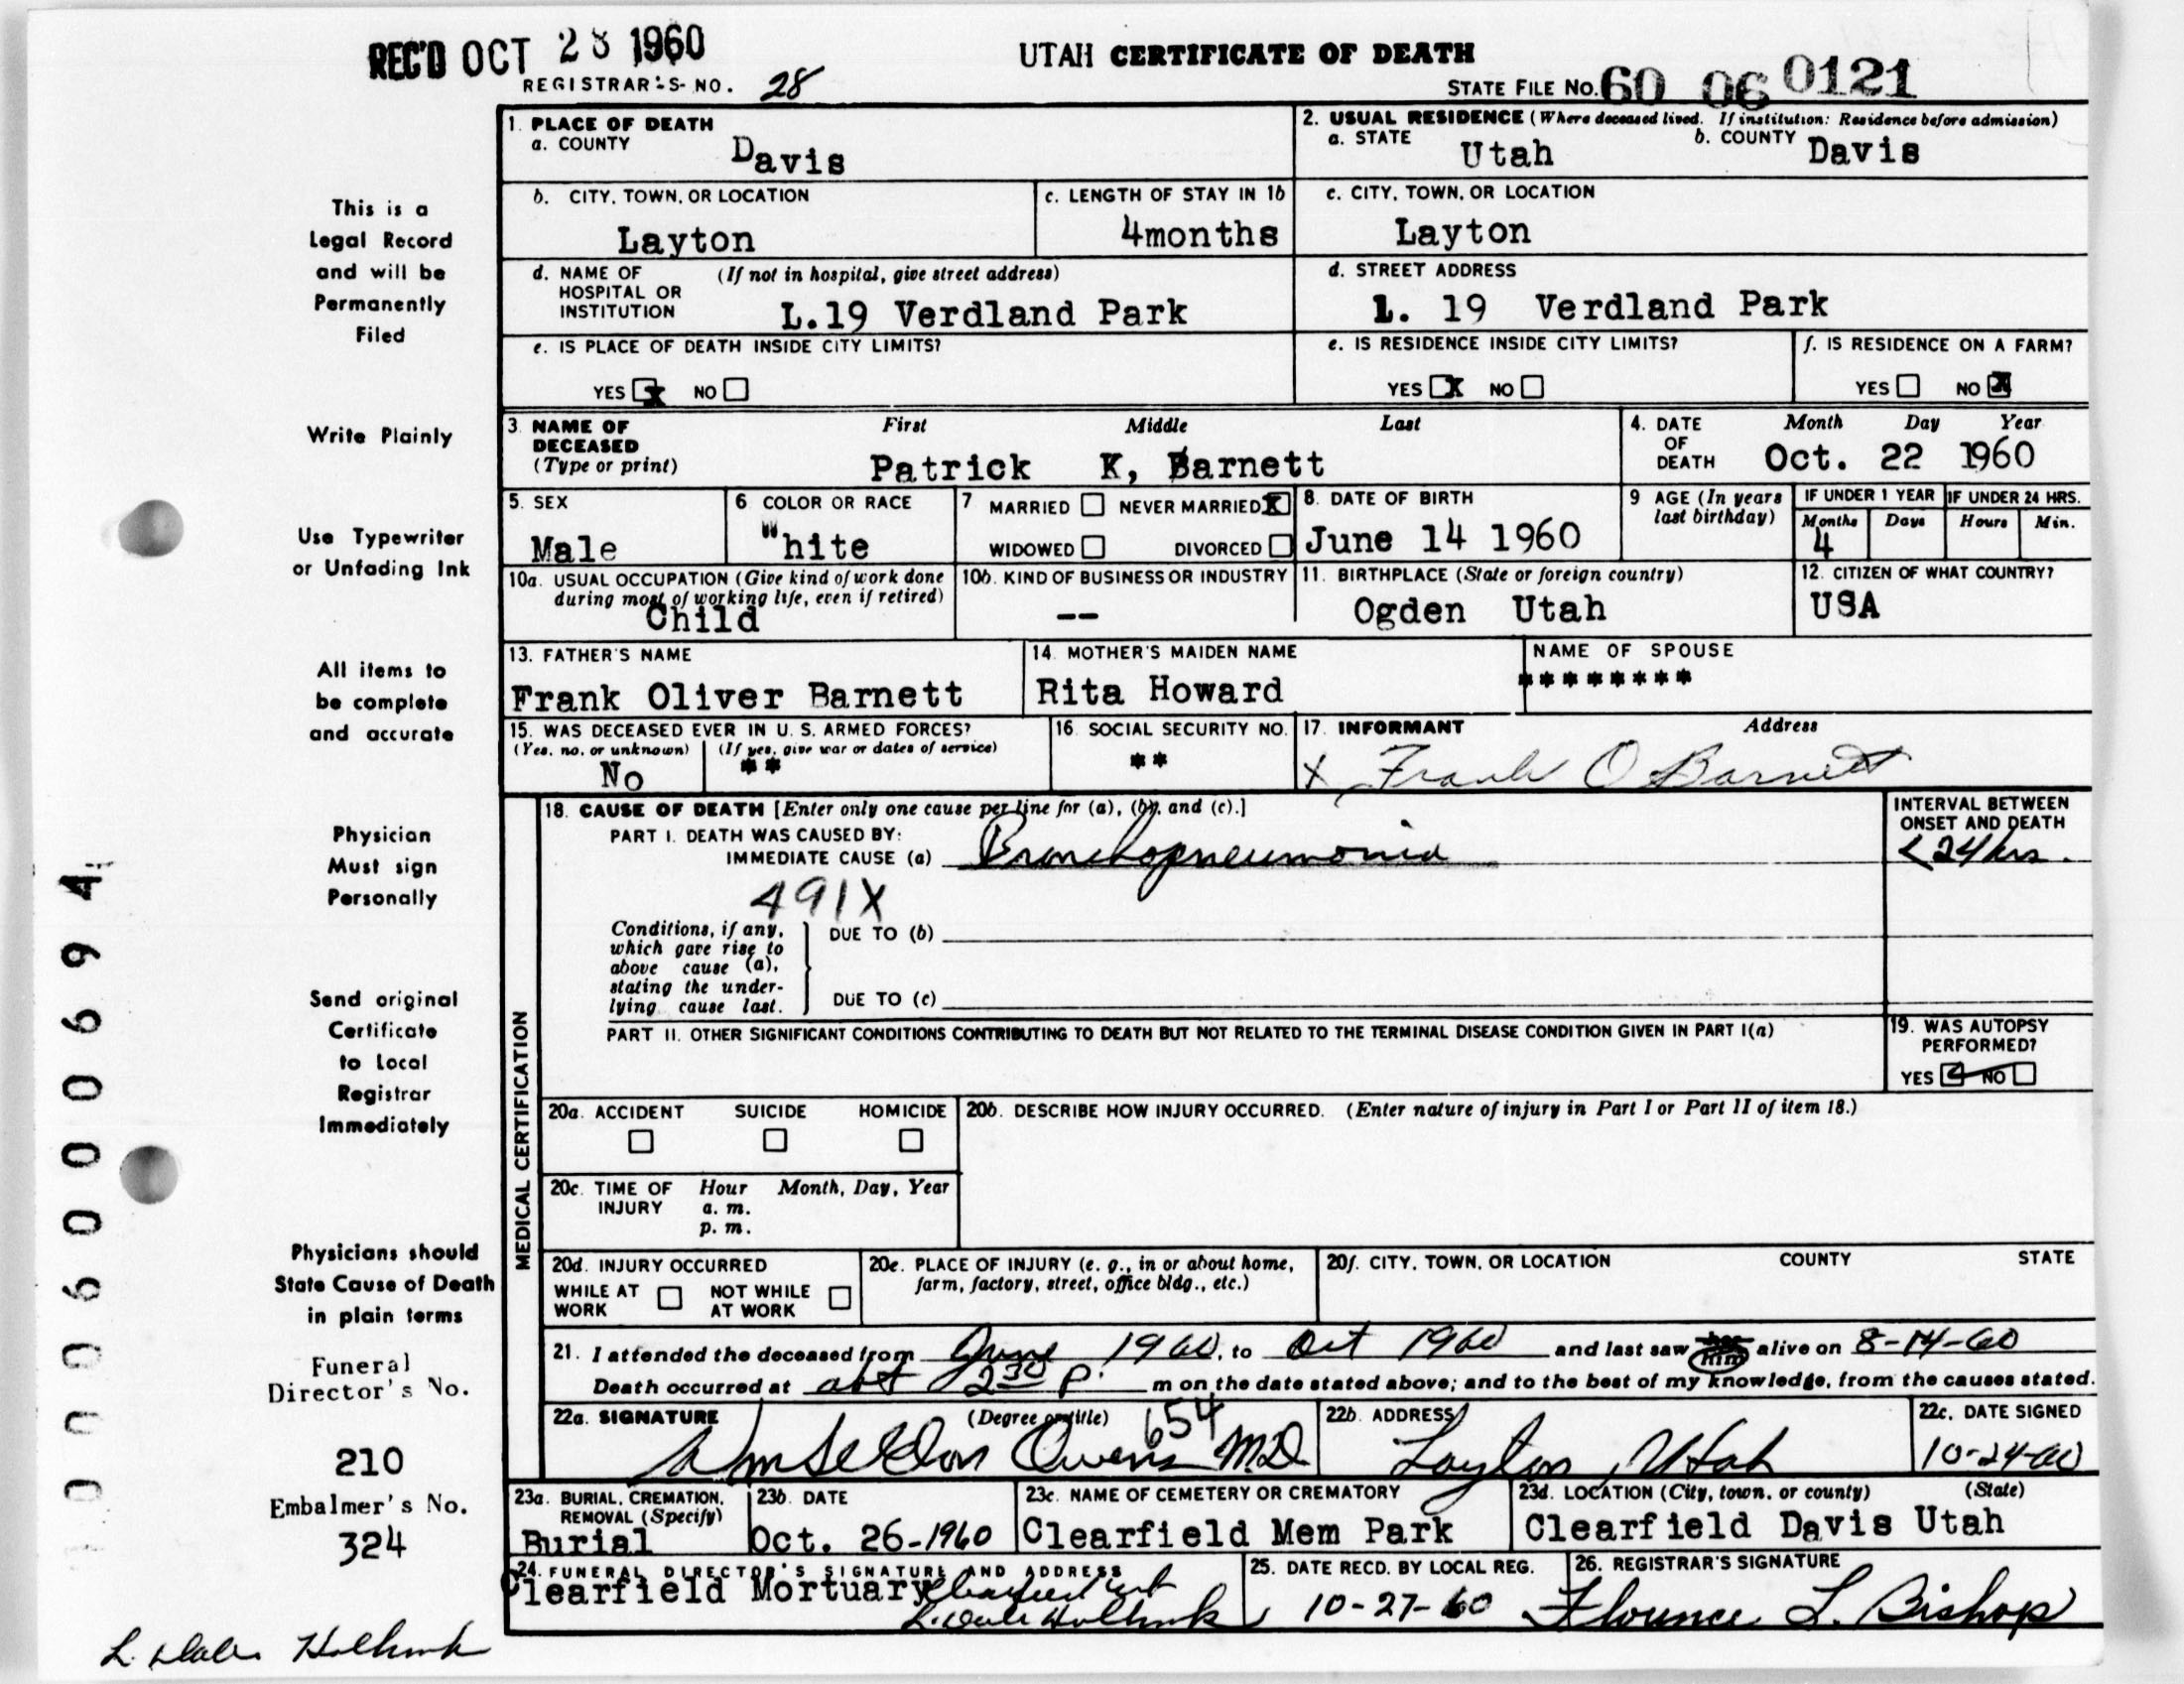 REC'D OCT 28 1960
UTAH CERTIFICATE OF DEATH
REGISTRAR'S NO. 28
STATE FILE No. 60 06 0121
1. PLACE OF DEATH
a. COUNTY Davis
2. USUAL RESIDENCE (Where deceased lived. If institution: Residence before admission)
a. STATE Utah b. COUNTY Davis
b. CITY, TOWN, OR LOCATION
Layton
c. LENGTH OF STAY IN 1b
4months
c. CITY, TOWN, OR LOCATION
Layton
d. NAME OF HOSPITAL OR INSTITUTION (If not in hospital, give street address)
L.19 Verdland Park
d. STREET ADDRESS
L. 19 Verdland Park
e. IS PLACE OF DEATH INSIDE CITY LIMITS?
YES X NO
e. IS RESIDENCE INSIDE CITY LIMITS?
YES X NO
f. IS RESIDENCE ON A FARM?
YES NO X
3. NAME OF DECEASED (Type or print)
First Middle Last
Patrick K, Barnett
4. DATE OF DEATH
Month Day Year
Oct. 22 1960
5. SEX
Male
6 COLOR OR RACE
White
7 MARRIED NEVER MARRIED X
WIDOWED DIVORCED
8. DATE OF BIRTH
June 14 1960
9 AGE (In years last birthday)
IF UNDER 1 YEAR
Months Days
4
IF UNDER 24 HRS.
Hours Min.
10a. USUAL OCCUPATION (Give kind of work done during most of working life, even if retired)
Child
10b. KIND OF BUSINESS OR INDUSTRY
--
11. BIRTHPLACE (State or foreign country)
Ogden Utah
12. CITIZEN OF WHAT COUNTRY?
USA
13. FATHER'S NAME
Frank Oliver Barnett
14. MOTHER'S MAIDEN NAME
Rita Howard
NAME OF SPOUSE
********
15. WAS DECEASED EVER IN U. S. ARMED FORCES?
(Yes, no, or unknown) (If yes, give war or dates of service)
No **
16. SOCIAL SECURITY NO.
**
17. INFORMANT Address
X Frank O Barnett
MEDICAL CERTIFICATION
18. CAUSE OF DEATH [Enter only one cause per line for (a), (b), and (c).]
PART I. DEATH WAS CAUSED BY:
IMMEDIATE CAUSE (a) Bronchopneumonia
INTERVAL BETWEEN ONSET AND DEATH
< 24 hrs.
491X
Conditions, if any, which gave rise to above cause (a), stating the underlying cause last.
DUE TO (b)
DUE TO (c)
PART II. OTHER SIGNIFICANT CONDITIONS CONTRIBUTING TO DEATH BUT NOT RELATED TO THE TERMINAL DISEASE CONDITION GIVEN IN PART I(a)
19. WAS AUTOPSY PERFORMED?
YES NO
20a. ACCIDENT SUICIDE HOMICIDE
20b. DESCRIBE HOW INJURY OCCURRED. (Enter nature of injury in Part I or Part II of item 18.)
20c. TIME OF INJURY Hour Month, Day, Year
a. m.
p. m.
20d. INJURY OCCURRED
WHILE AT WORK NOT WHILE AT WORK
20e. PLACE OF INJURY (e. g., in or about home, farm, factory, street, office bldg., etc.)
20f. CITY, TOWN, OR LOCATION COUNTY STATE
21. I attended the deceased from June 1960, to Oct 1960 and last saw him alive on 8-14-60
Death occurred at abt 2:30 P. m on the date stated above; and to the best of my knowledge, from the causes stated.
22a. SIGNATURE (Degree or title) 654
Wm Seldon Owens M.D.
22b. ADDRESS
Layton, Utah
22c. DATE SIGNED
10-24-60
23a. BURIAL, CREMATION, REMOVAL (Specify)
Burial
23b. DATE
Oct. 26-1960
23c. NAME OF CEMETERY OR CREMATORY
Clearfield Mem Park
23d. LOCATION (City, town, or county) (State)
Clearfield Davis Utah
24. FUNERAL DIRECTOR'S SIGNATURE AND ADDRESS
Clearfield Mortuary Clearfield Ut
25. DATE RECD. BY LOCAL REG.
10-27-60
26. REGISTRAR'S SIGNATURE
Flounce L. Bishop
This is a
Legal Record
and will be
Permanently
Filed
Write Plainly
Use Typewriter
or Unfading Ink
All items to
be complete
and accurate
Physician
Must sign
Personally
Send original
Certificate
to Local
Registrar
Immediately
Physicians should
State Cause of Death
in plain terms
Funeral
Director's No.
210
Embalmer's No.
324
L. Dale